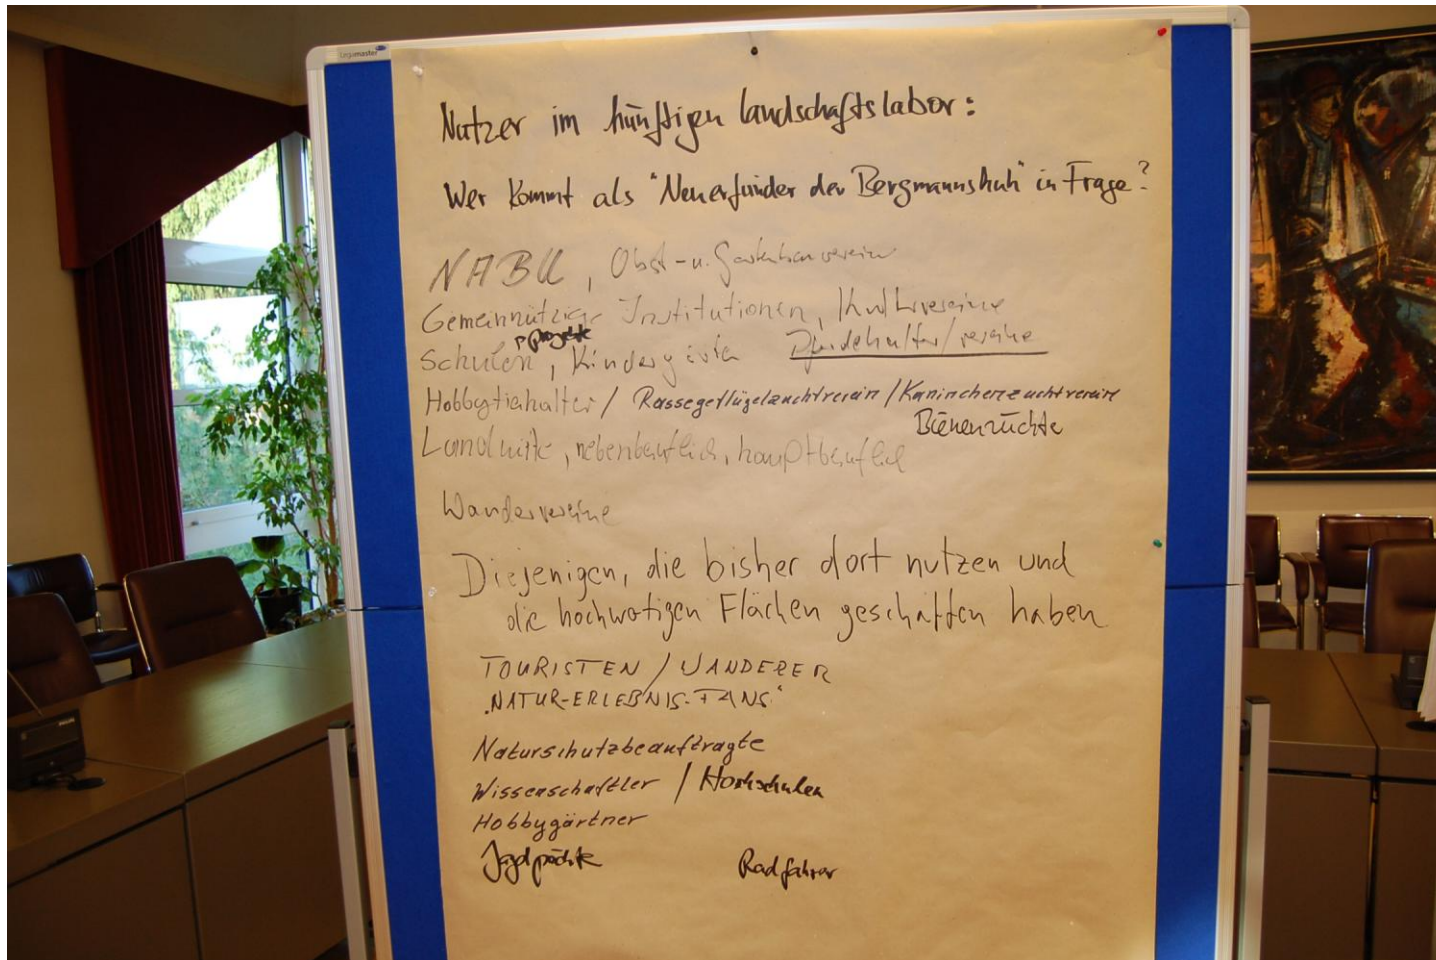 Legamaster
Nutzer im künftigen Landschaftslabor:
Wer kommt als "Neuerfinder der Bergmannskuh" in Frage?
NABU, Obst- u. Gartenbauverein
Gemeinnützige Institutionen, Kulturvereine
Schulen, projekte Kindergärten Pferdehalter/vereine
Hobbytierhalter / Rassegeflügelzuchtverein / Kaninchenzuchtverein
Bienenzüchte
Landwirte, nebenberuflich, hauptberuflich
Wandervereine
Diejenigen, die bisher dort nutzen und
die hochwertigen Flächen geschaffen haben
TOURISTEN / WANDERER
"NATUR-ERLEBNIS-FANS"
Naturschutzbeauftragte
Wissenschaftler / Hochschulen
Hobbygärtner
Jagdpächter Radfahrer